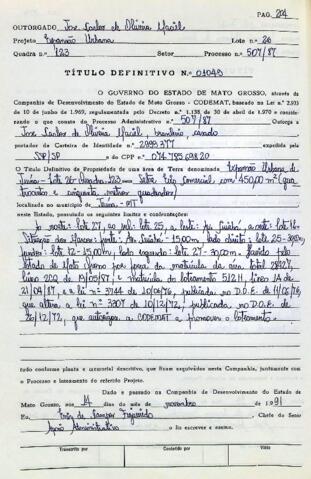 PAG. 204
OUTORGADO José Santos de Oliveira Maciel
Projeto Expansão Urbana Lote n.º 26
Quadra n.º 123 Setor Processo n.º 507/87
TÍTULO DEFINITIVO N.º 01049
O GOVERNO DO ESTADO DE MATO GROSSO, através da
Companhia de Desenvolvimento do Estado de Mato Grosso - CODEMAT, baseado na Lei n.º 2.933
de 10 de junho de 1969, regulamentada pelo Decreto n.º 1.138 de 30 de abril de 1970 e consti-
rando o que consta do Processo Administrativo n.º 507/87 Outorga a
José Santos de Oliveira Maciel, brasileiro, casado
portador da Carteira de Identidade n.º 2899377
SSP/SP e do CPF n.º
O Título Definitivo de Propriedade de uma área de Terra denominada Expansão Urbana de
Juína - Lote 26 - Quadra 123 - Setor Comercial com 450,00 m² (qua
trocentos e cinquenta metros quadrados)
localizada no município de Juína - MT
neste Estado, possuindo os seguintes limites e confrontações:
norte: lote 27, ao sul: lote 25, a leste: Av. Cuiabá, a oeste: lote 12
Situação dos Marcos: frente: Av. Cuiabá - 15,00m, lado direito: lote 25 - 30,00m
fundos: lote 12 - 15,00m, lado esquerdo: lote 27 - 30,00m. Havido pelo
Estado de Mato Grosso por força da matrícula da área total
livro 2 e matrícula do loteamento
e a lei nº 3744 de 10/06/76, publicada no D.O.E. de 11/06/76,
que altera a lei nº 3307 de 10/12/72, publicada no D.O.E. de
20/12/72, que autoriza a CODEMAT a promover o loteamento.
tudo conforme planta e memorial descritivo, que ficam arquivados nesta Companhia, juntamente com
o Processo e loteamento do referido Projeto.
Dado e passado na Companhia de Desenvolvimento do Estado de
Mato Grosso, aos 14 dias do mês de novembro de 1991
Eu, Chefe do Setor
Apoio Administrativo o fiz escrever e assino.
Transcrito por Conferido por Visto